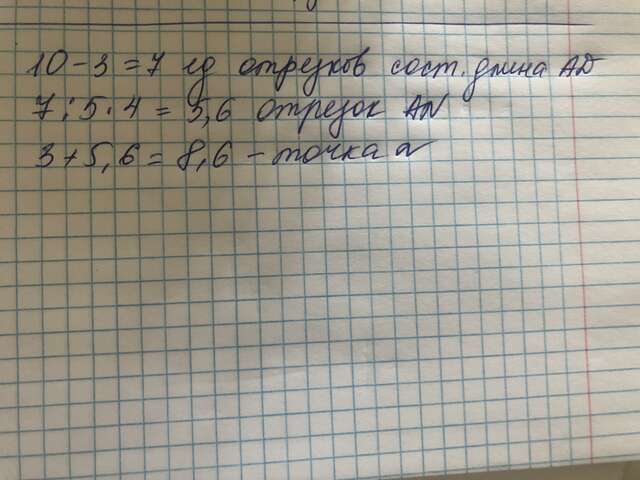 10 - 3 = 7 ед отрезков сост. длина AD
7 : 5 · 4 = 5,6 отрезок AN
3 + 5,6 = 8,6 - точка N